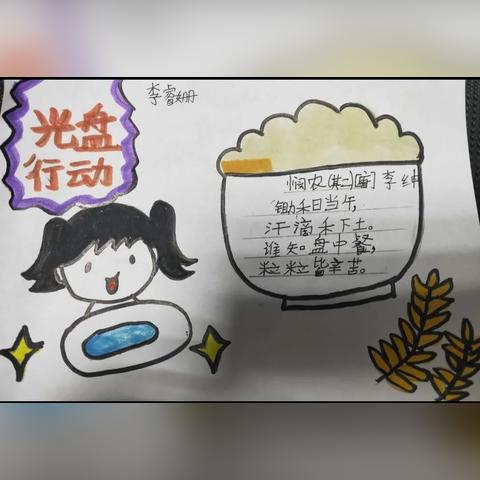 光盘
行动
李睿姗
悯农(其二)[唐]李绅
锄禾日当午,
汗滴禾下土。
谁知盘中餐,
粒粒皆辛苦。